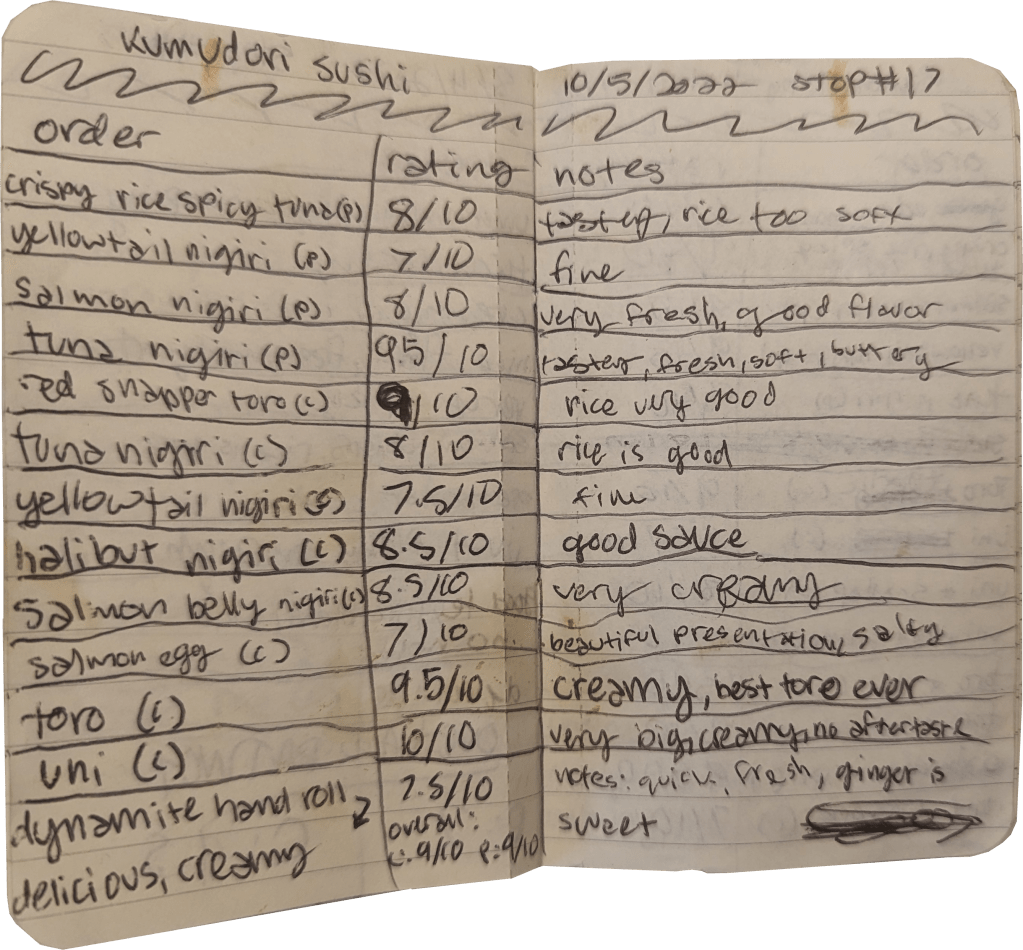 Kumudori Sushi
10/5/2022 stop #17
order rating notes
crispy rice spicy tuna (p) 8/10 tastey, rice too soft
yellowtail nigiri (p) 7/10 fine
salmon nigiri (p) 8/10 very fresh, good flavor
tuna nigiri (p) 9.5/10 tastey, fresh, soft, buttery
red snapper toro (c) 9/10 rice very good
tuna nigiri (c) 8/10 rice is good
yellowtail nigiri (c) 7.5/10 fine
halibut nigiri (c) 8.5/10 good sauce
salmon belly nigiri (c) 8.5/10 very creamy
salmon egg (c) 7/10 beautiful presentation, salty
toro (c) 9.5/10 creamy, best toro ever
uni (c) 10/10 very big, creamy, no aftertaste
dynamite hand roll 7.5/10 notes: quick, fresh, ginger is
sweet
delicious, creamy
overall:
c: 9/10 p: 9/10